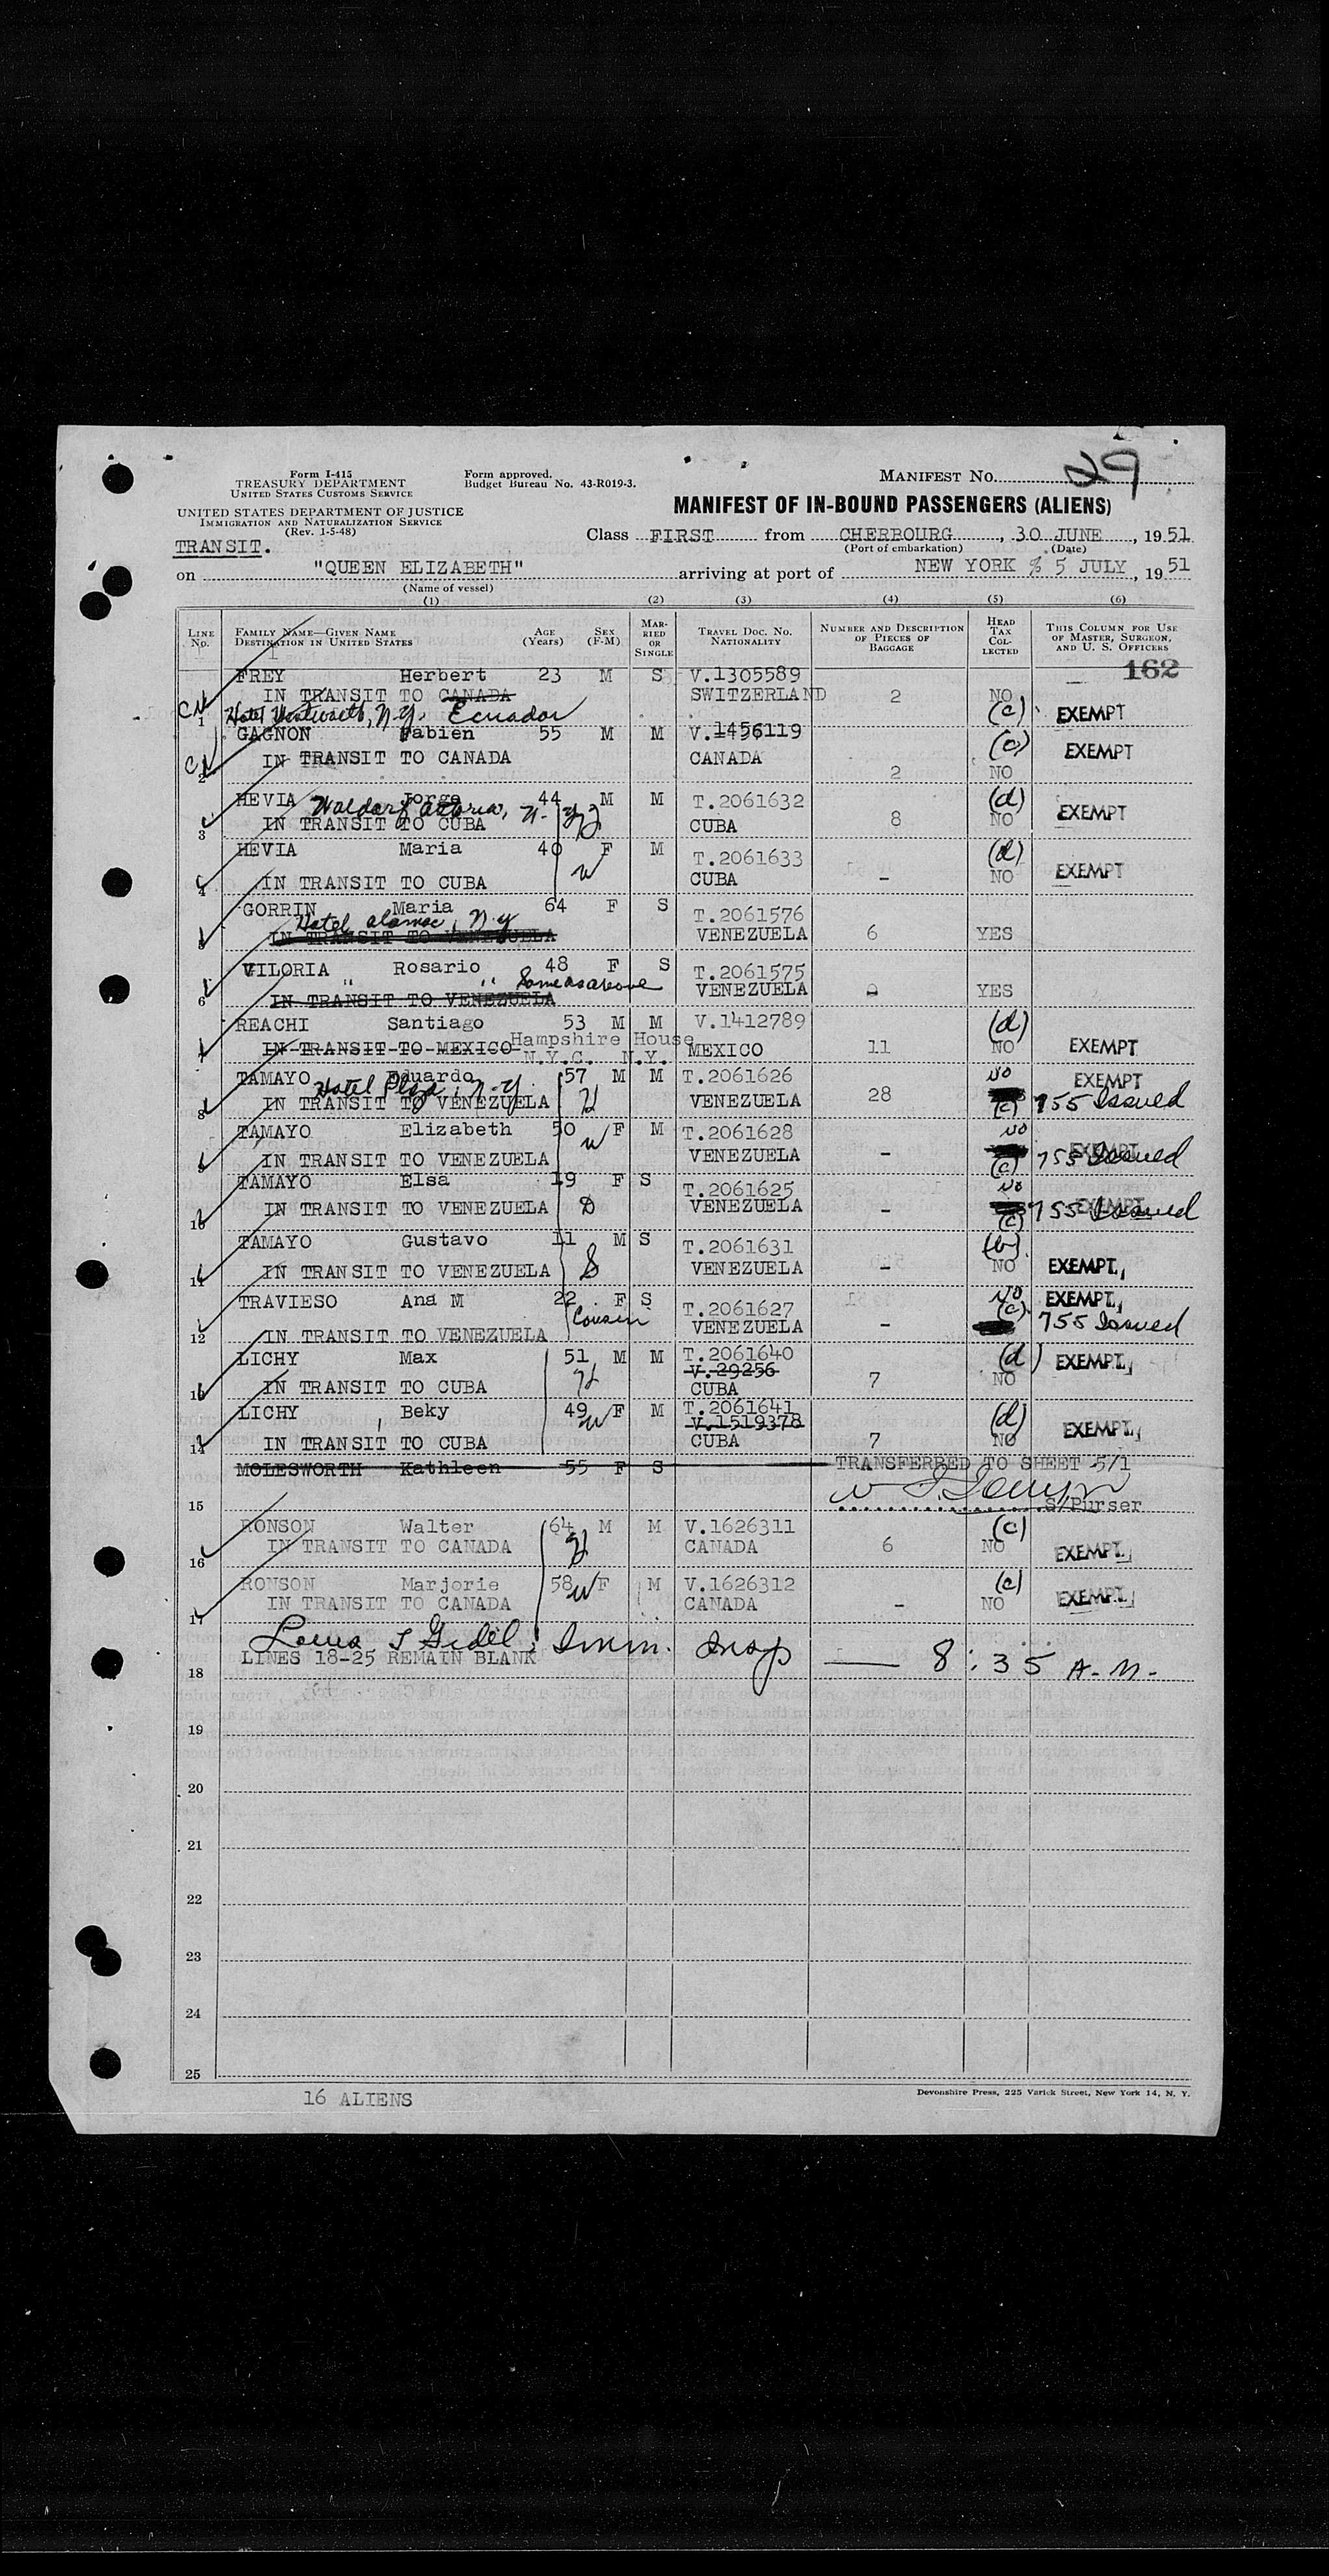 Form I-415
TREASURY DEPARTMENT
UNITED STATES CUSTOMS SERVICE
UNITED STATES DEPARTMENT OF JUSTICE
IMMIGRATION AND NATURALIZATION SERVICE
(Rev. 1-5-48)
Form approved.
Budget Bureau No. 43-R019-3.
MANIFEST NO. 29
MANIFEST OF IN-BOUND PASSENGERS (ALIENS)
TRANSIT.
Class FIRST from CHERBOURG, 30 JUNE, 1951
(Port of embarkation) (Date)
on "QUEEN ELIZABETH" arriving at port of NEW YORK 5 JULY, 1951
(Name of vessel)
(1) (2) (3) (4) (5) (6)
LINE No. FAMILY NAME—GIVEN NAME DESTINATION IN UNITED STATES AGE (Years) SEX (F-M) MARRIED OR SINGLE TRAVEL DOC. NO. NATIONALITY NUMBER AND DESCRIPTION OF PIECES OF BAGGAGE HEAD TAX COLLECTED THIS COLUMN FOR USE OF MASTER, SURGEON, AND U. S. OFFICERS
162
FREY Herbert 23 M S V.1305589
IN TRANSIT TO CANADA SWITZERLAND 2 NO
1 Hotel Wentworth, N.Y. Ecuador (c) EXEMPT
GAGNON Fabien 55 M M V.1456119 (c) EXEMPT
2 IN TRANSIT TO CANADA CANADA 2 NO
HEVIA Jorge 44 M M T.2061632 (d) EXEMPT
Waldorf Astoria, N.Y. H
3 IN TRANSIT TO CUBA CUBA 8 NO
HEVIA Maria 40 F M T.2061633 (d)
4 IN TRANSIT TO CUBA W CUBA - NO EXEMPT
GORRIN Maria 64 F S T.2061576
Hotel Alamac, N.Y.
5 IN TRANSIT TO VENEZUELA VENEZUELA 6 YES
VILORIA Rosario 48 F S T.2061575
" " Same as above
6 IN TRANSIT TO VENEZUELA VENEZUELA YES
REACHI Santiago 53 M M V.1412789 (d)
7 IN TRANSIT TO MEXICO Hampshire House MEXICO 11 NO EXEMPT
N.Y.C. N.Y.
TAMAYO Eduardo 57 M M T.2061626 NO EXEMPT
Hotel Plaza, N.Y.
8 IN TRANSIT TO VENEZUELA H VENEZUELA 28 (c) 755 Issued
TAMAYO Elizabeth 50 F M T.2061628 NO EXEMPT
9 IN TRANSIT TO VENEZUELA W VENEZUELA - (c) 755 Issued
TAMAYO Elsa 19 F S T.2061625 NO EXEMPT
10 IN TRANSIT TO VENEZUELA D VENEZUELA - (c) 755 Issued
TAMAYO Gustavo 11 M S T.2061631 (b)
11 IN TRANSIT TO VENEZUELA S VENEZUELA - NO EXEMPT
TRAVIESO Ana M 22 F S T.2061627 NO EXEMPT
Cousin (c)
12 IN TRANSIT TO VENEZUELA VENEZUELA - 755 Issued
LICHY Max 51 M M T.2061640 (d) EXEMPT
V.29256
13 IN TRANSIT TO CUBA H CUBA 7 NO
LICHY Beky 49 W F M T.2061641 (d) EXEMPT
V.1519378
14 IN TRANSIT TO CUBA CUBA 7 NO
MOLESWORTH Kathleen 55 F S TRANSFERRED TO SHEET 5/1
15 S/Purser
RONSON Walter 64 M M V.1626311 (c)
16 IN TRANSIT TO CANADA H CANADA 6 NO EXEMPT
RONSON Marjorie 58 W F M V.1626312 (c)
17 IN TRANSIT TO CANADA CANADA - NO EXEMPT
Imm. Insp — 8:35 A.M.
18 LINES 18-25 REMAIN BLANK
19
20
21
22
23
24
25
16 ALIENS
Devonshire Press, 225 Varick Street, New York 14, N. Y.